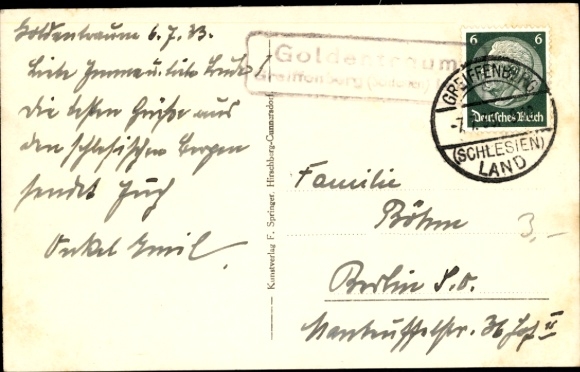 Goldentraum 6.7.33.
Liebe Imma u. liebe Trude!
Die besten Grüße aus
den schlesischen Bergen
sendet Euch
Onkel Emil.
Goldentraum
Greiffenberg (Schles)
6 6
Deutsches Reich
GREIFFENBERG
(SCHLESIEN)
LAND
Kunstverlag F. Springer, Hirschberg-Cunnersdorf
Familie
Böhm
Berlin S.O.
Manteuffelstr. 36 Hof II
3,-